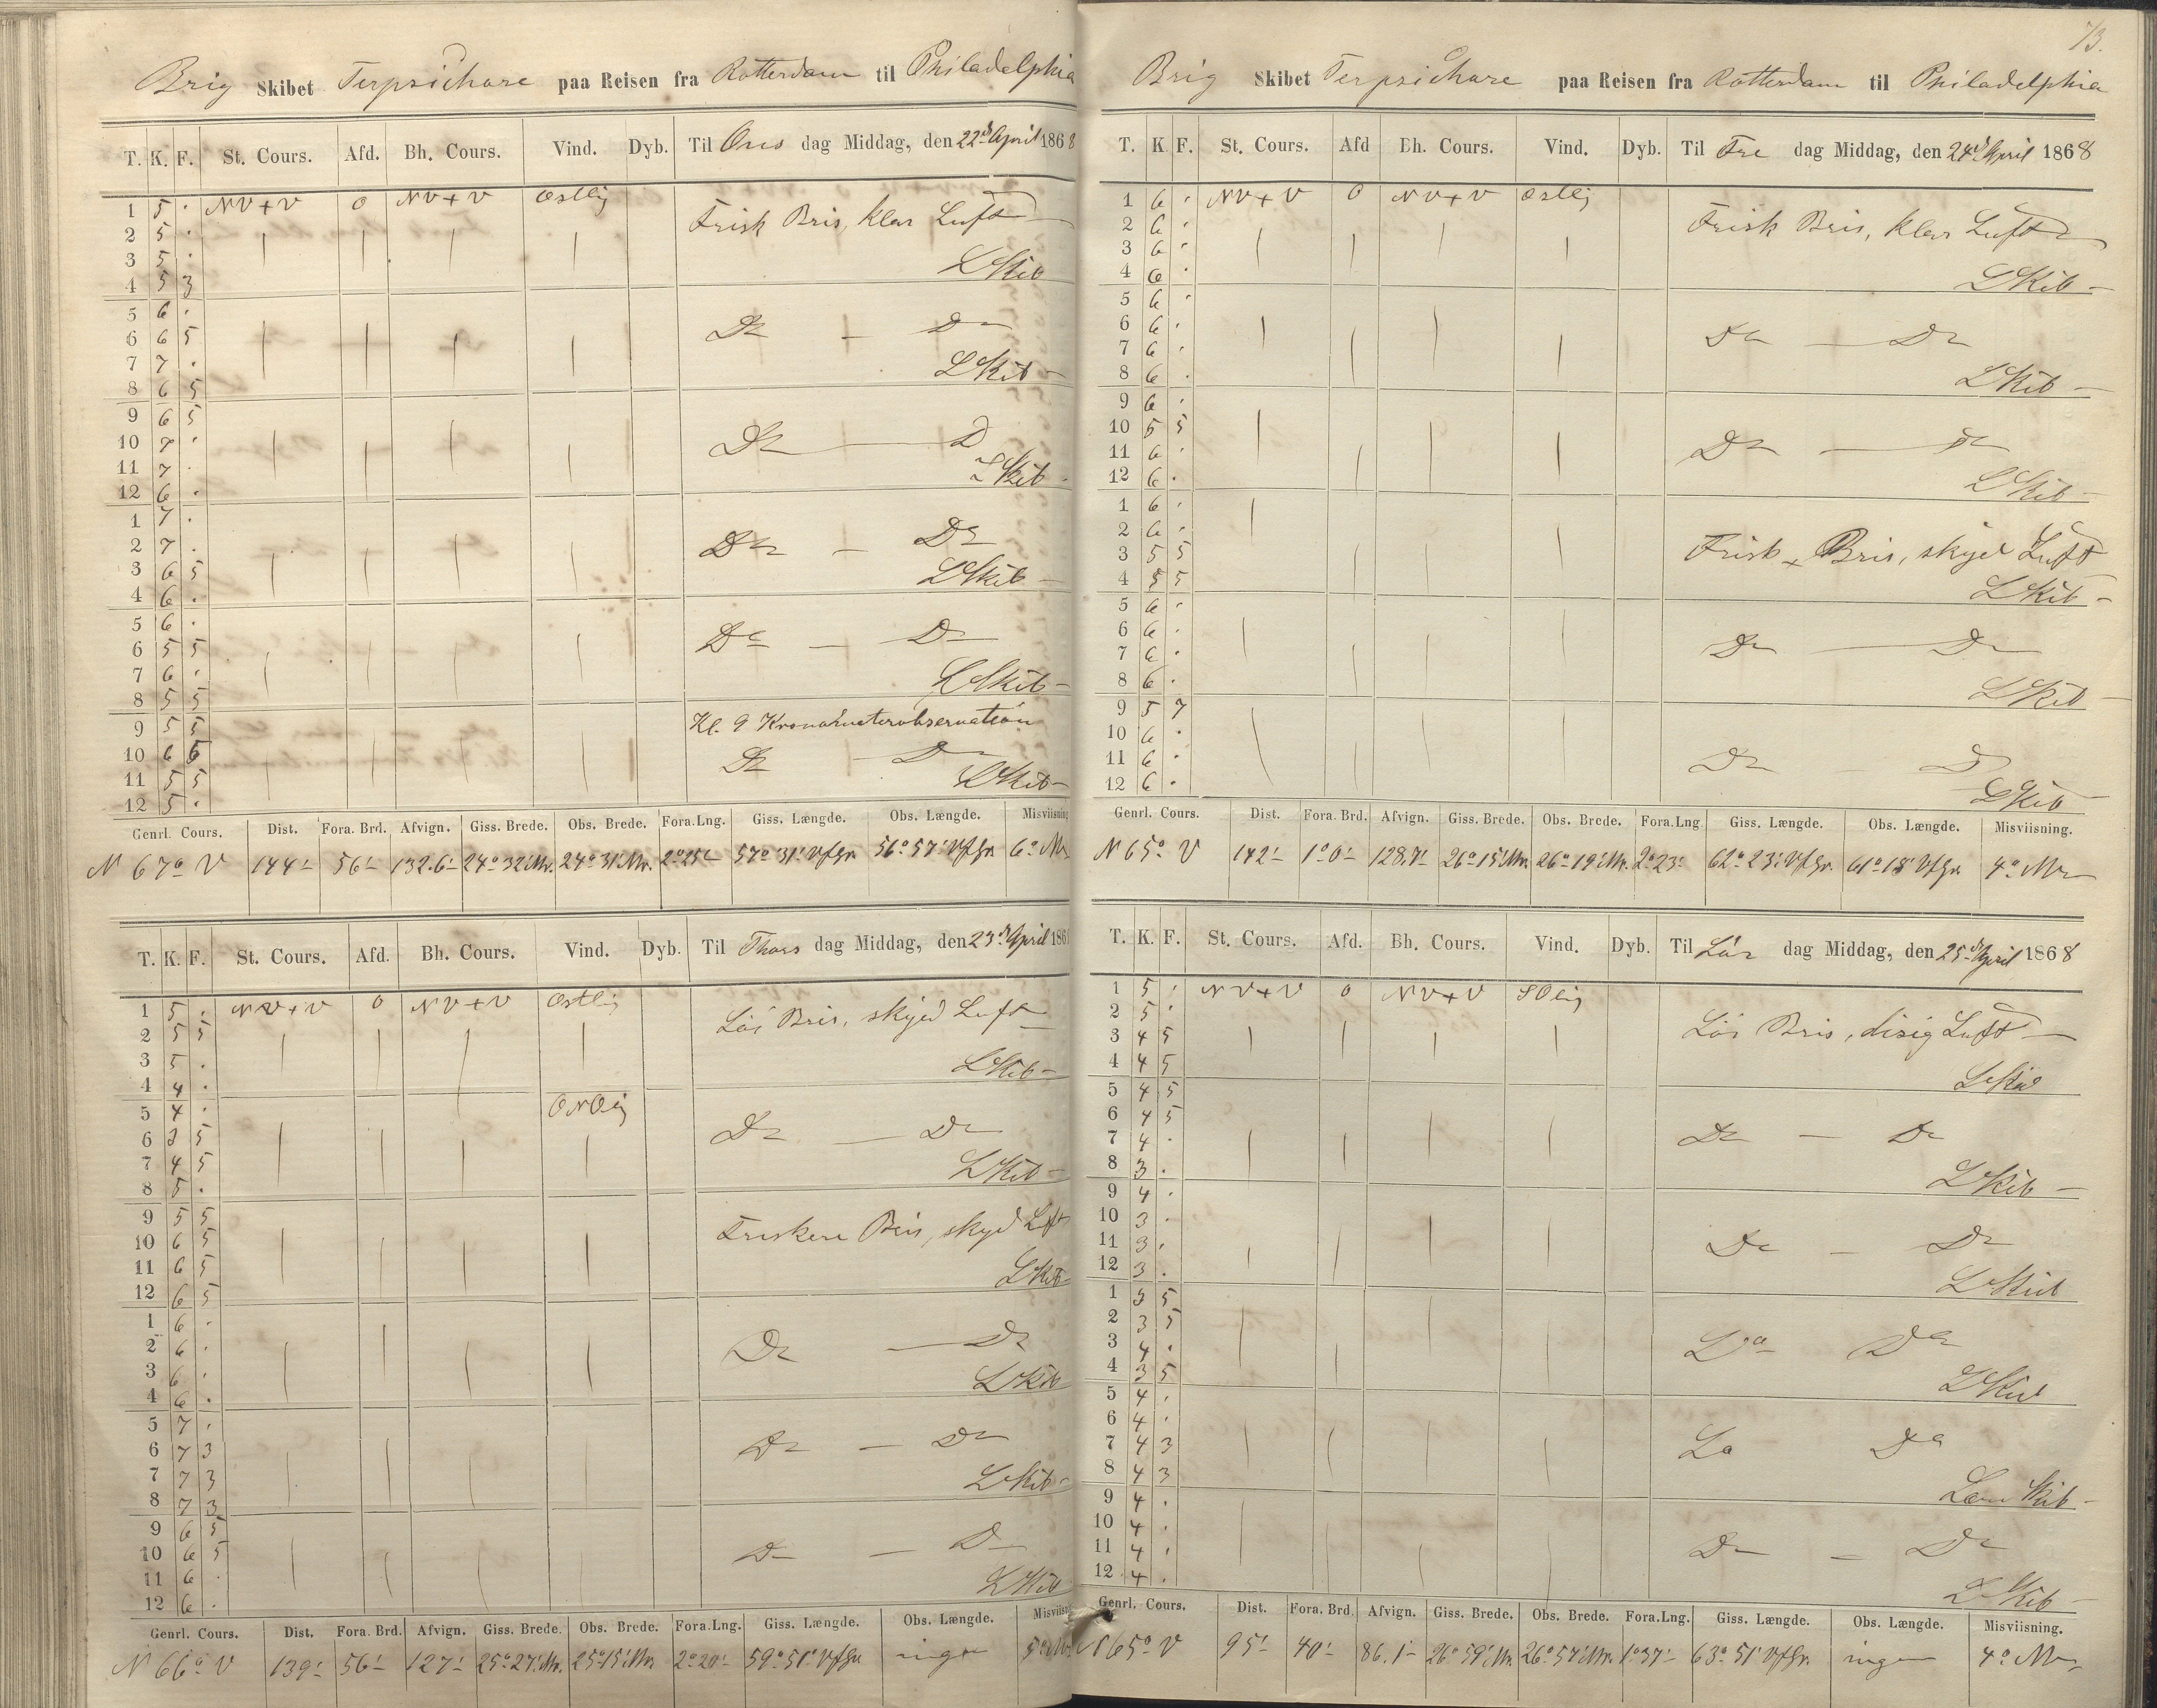 Brig Skibet Terpsichore paa Reisen fra Rotterdam til Philadelphia
T. K. F. St. Cours. Afd. Bh. Cours. Vind. Dyb. Til Ons dag Middag, den 22d April 1868
1 5 . NV+V 0 NV+V Østlig
2 5 . Frisk Bris, klar Luft
3 5 .
4 5 3 LSkib
5 6 .
6 6 5 Do — Do
7 7 .
8 6 5 LSkib
9 6 5
10 7 . Do — D
11 7 .
12 6 . LSkib
1 7 .
2 7 . Do — Do
3 6 5 LSkib
4 6 .
5 6 .
6 5 5 Do — Do
7 6 .
8 5 5 LSkib
9 5 5 Kl. 9 Kronometerobservation
10 6 5 Do — Do
11 5 5 LSkib
12 5 .
Genrl. Cours. Dist. Fora. Brd. Afvign. Giss. Brede. Obs. Brede. Fora.Lng. Giss. Længde. Obs. Længde. Misviisning
N 67° V 144' 56' 132.6' 24° 32' Nr. 24° 31' Nr. 2° 25' 57° 31' VfGr. 56° 57' VfGr. 6° Nv
T. K. F. St. Cours. Afd. Bh. Cours. Vind. Dyb. Til Thors dag Middag, den 23d April 186
1 5 . NV+V 0 NV+V Østlig
2 5 5 Löi Bris, skyed Luft
3 5 .
4 4 . LSkib
5 4 . ONOlig
6 3 5 Do — Do
7 4 5
8 5 . LSkib
9 5 5
10 6 5 Friskere Bris, skyed Luft
11 6 5
12 6 5 LSkib
1 6 .
2 6 . Do — Do
3 6 .
4 6 . LSkib
5 7 .
6 7 3 Do — Do
7 7 3
8 7 3 LSkib
9 6 5
10 6 5 Do — Do
11 6 .
12 6 . LSkib
Genrl. Cours. Dist. Fora. Brd. Afvign. Giss. Brede. Obs. Brede. Fora.Lng. Giss. Længde. Obs. Længde. Misviisn
N 66° V 139' 56' 127' 25° 27' Nr. 25° 15' Nr. 2° 20' 59° 51' VfGr. ingen 5° Nv
73.
Brig Skibet Terpsichore paa Reisen fra Rotterdam til Philadelphia
T. K. F. St. Cours. Afd Bh. Cours. Vind. Dyb. Til Fre dag Middag, den 24d April 1868
1 6 . NV+V 0 NV+V Østlig
2 6 . Frisk Bris, klar Luft
3 6 .
4 6 . LSkib
5 6 .
6 6 . Do — Do
7 6 .
8 6 . LSkib
9 6 .
10 5 5 Do — Do
11 6 .
12 6 . LSkib
1 6 .
2 6 .
3 5 5 Frisk Bris, skyed Luft
4 5 5 LSkib
5 6 .
6 6 . Do — Do
7 6 .
8 6 . LSkib
9 5 7
10 6 .
11 6 . Do — D
12 6 . LSkib
Genrl. Cours. Dist. Fora. Brd. Afvign. Giss. Brede. Obs. Brede. Fora.Lng. Giss. Længde. Obs. Længde. Misviisning.
N 65° V 142' 1° 0' 128.7' 26° 15' Nr. 26° 19' Nr. 2° 23' 62° 23' VfGr. 61° 18' VfGr. 4° Nv
T. K. F. St. Cours. Afd. Bh. Cours. Vind. Dyb. Til Lör dag Middag, den 25d April 1868
1 5 . NV+V 0 NV+V SOlig
2 5 .
3 4 5 Löi Bris, disig Luft
4 4 5 LSkib
5 4 5
6 4 5
7 4 . Do — Do
8 3 . LSkib
9 4 .
10 3 .
11 3 . Do — Do
12 3 . LSkib
1 3 5
2 3 5
3 4 . Do Do
4 3 5 LSkib
5 4 .
6 4 .
7 4 3 Do Do
8 4 3 Læns Skib
9 4 .
10 4 .
11 4 . Do — Do
12 4 . LSkib
Genrl. Cours. Dist. Fora. Brd. Afvign. Giss. Brede. Obs. Brede. Fora.Lng. Giss. Længde. Obs. Længde. Misviisning.
N 65° V 95' 40' 86.1' 26° 59' Nr. 26° 57' Nr. 1° 37' 63° 51' VfGr. ingen 4° Nv